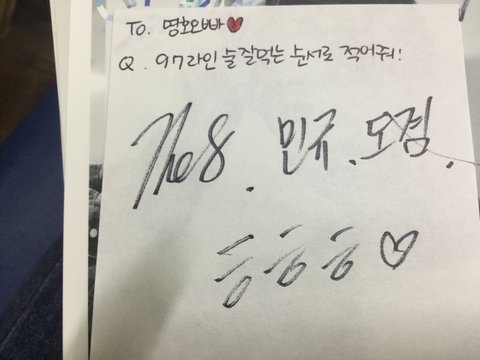 To. 명호오빠♥
Q. 97라인 술 잘먹는 순서로 적어줘!
The8. 민규. 도겸.
흥흥흥♡